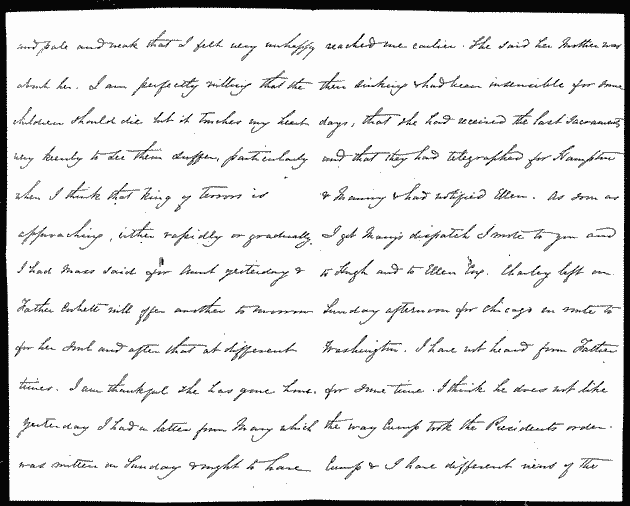 and pale and weak that I felt very unhappy
about her. I am perfectly willing that the
children should die but it touches my heart
very keenly to see them suffer, particularly
when I think that King of terrors is
approaching, either rapidly or gradually.
I had Mass said for Aunt yesterday &
Father will offer another to morrow
for her soul and after that at different
times. I am thankful she has gone home.
Yesterday I had a letter from Mary which
was written on Sunday & ought to have
reached me earlier. She said her Mother was
then sinking & had been insensible for some
days, that she had received the last Sacraments
and that they had telegraphed for Hampton
& Manny & had notified Ellen. As soon as
I got Mary's dispatch I wrote to you and
to Hugh and to Ellen Cox. Charley left on
Sunday afternoon for Chicago en route to
Washington. I have not heard from Father
for some time. I think he does not like
the way Cump took the Presidents order.
Cump & I have different views of the